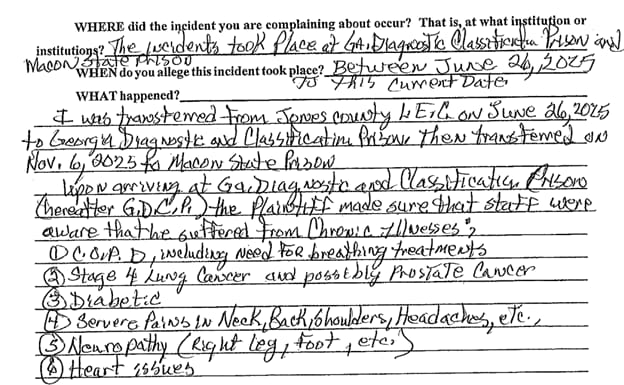 WHERE did the incident you are complaining about occur? That is, at what institution or
institutions? The incidents took Place at GA. Diagnostic Classification Prison and
Macon State Prison
WHEN do you allege this incident took place? Between June 26, 2025
To This Current Date
WHAT happened?
I was transferred from Jones County L.E.C. on June 26, 2025
to Georgia Diagnostic and Classification Prison, Then transferred on
Nov. 6, 2025 to Macon State Prison
Upon arriving at Ga. Diagnostic and Classification Prison
(hereafter G.D.C.P.) the Plaintiff made sure that staff were
aware that he suffered from Chronic Illnesses";
① C.O.P.D, including need for breathing treatments
② Stage 4 Lung Cancer and possibly Prostate Cancer
③ Diabetic
④ Servere Pains in Neck, Back, Shoulders, Headaches, etc.,
⑤ Neuropathy (Right leg, foot, etc.)
⑥ Heart issues